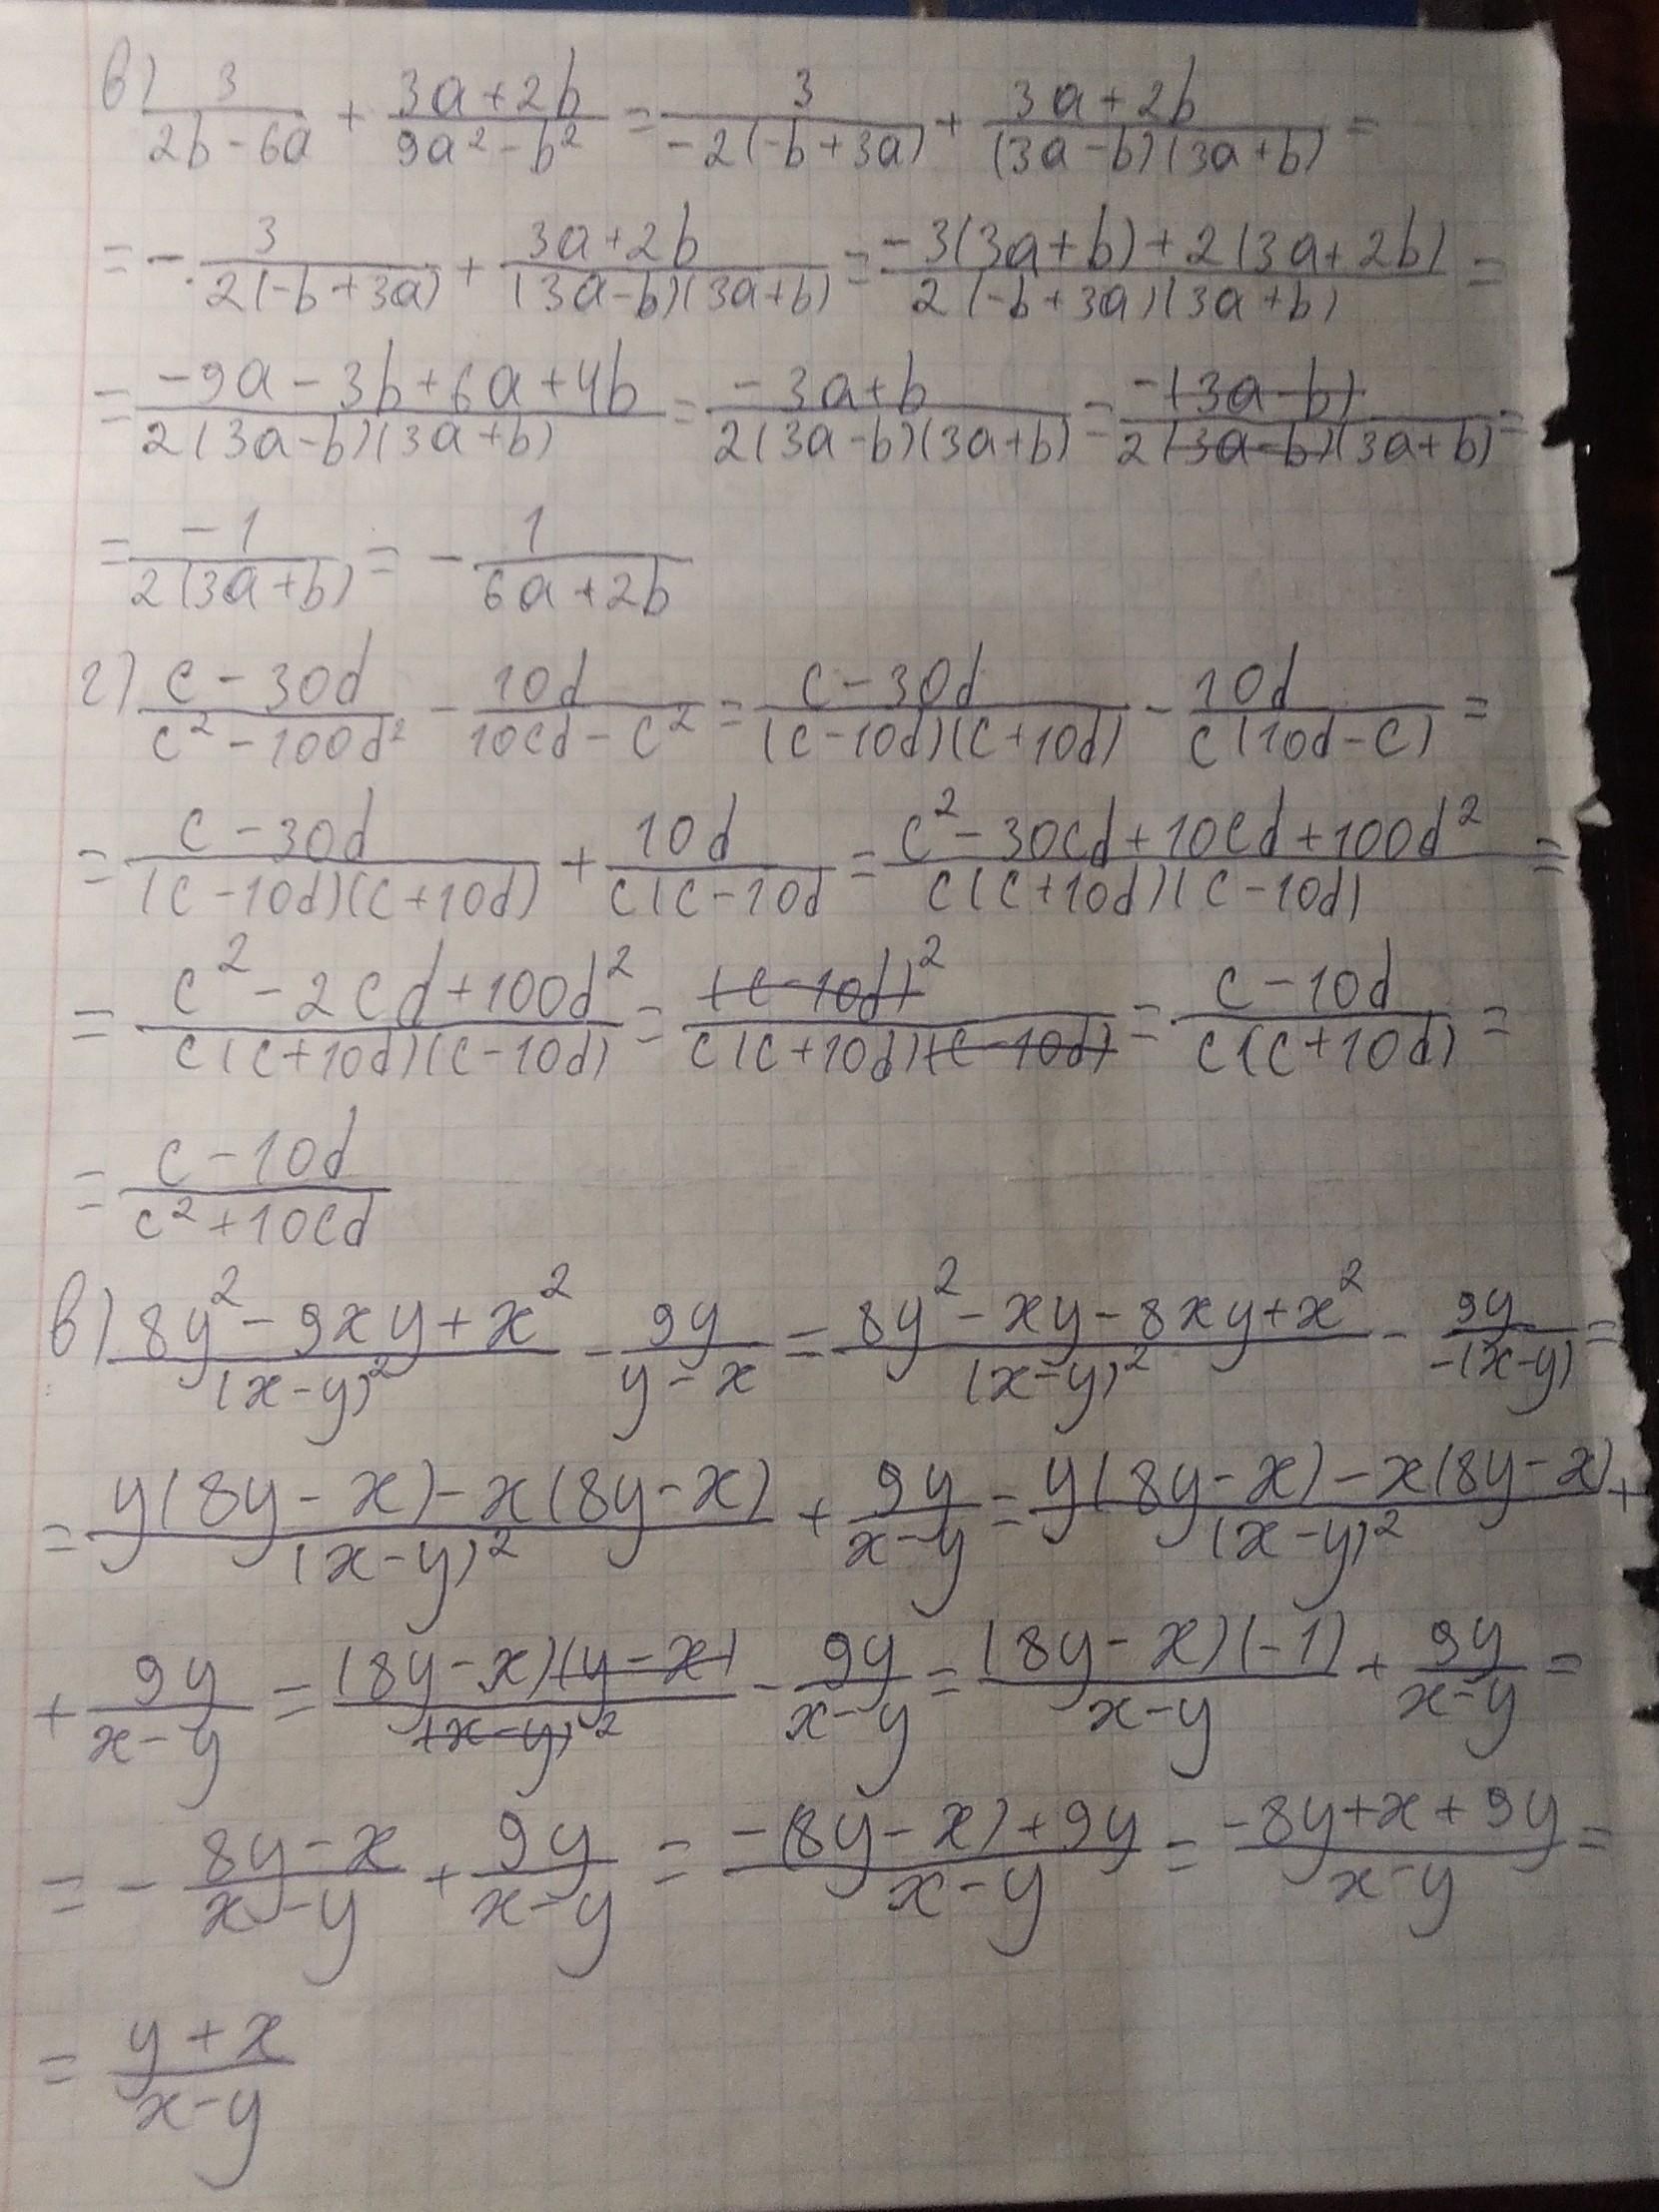 в) 3/(2b-6a) + (3a+2b)/(9a²-b²) = 3/(-2(-b+3a)) + (3a+2b)/((3a-b)(3a+b)) =
= - 3/(2(-b+3a)) + (3a+2b)/((3a-b)(3a+b)) = (-3(3a+b)+2(3a+2b))/(2(-b+3a)(3a+b)) =
= (-9a-3b+6a+4b)/(2(3a-b)(3a+b)) = (-3a+b)/(2(3a-b)(3a+b)) = (-(3a-b))/(2(3a-b)(3a+b)) =
= (-1)/(2(3a+b)) = - 1/(6a+2b)
г) (c-30d)/(c²-100d²) - 10d/(10cd-c²) = (c-30d)/((c-10d)(c+10d)) - 10d/(c(10d-c)) =
= (c-30d)/((c-10d)(c+10d)) + 10d/(c(c-10d) = (c²-30cd+10cd+100d²)/(c(c+10d)(c-10d)) =
= (c²-2cd+100d²)/(c(c+10d)(c-10d)) = (c-10d)²/(c(c+10d)(c-10d)) = (c-10d)/(c(c+10d)) =
= (c-10d)/(c²+10cd)
в) (8y²-9xy+x²)/(x-y)² - 9y/(y-x) = (8y²-xy-8xy+x²)/(x-y)² - 9y/(-(x-y)) =
= (y(8y-x)-x(8y-x))/(x-y)² + 9y/(x-y) = (y(8y-x)-x(8y-x))/(x-y)² +
+ 9y/(x-y) = ((8y-x)(y-x))/(x-y)² - 9y/(x-y) = ((8y-x)(-1))/(x-y) + 9y/(x-y) =
= - (8y-x)/(x-y) + 9y/(x-y) = (-(8y-x)+9y)/(x-y) = (-8y+x+9y)/(x-y) =
= (y+x)/(x-y)